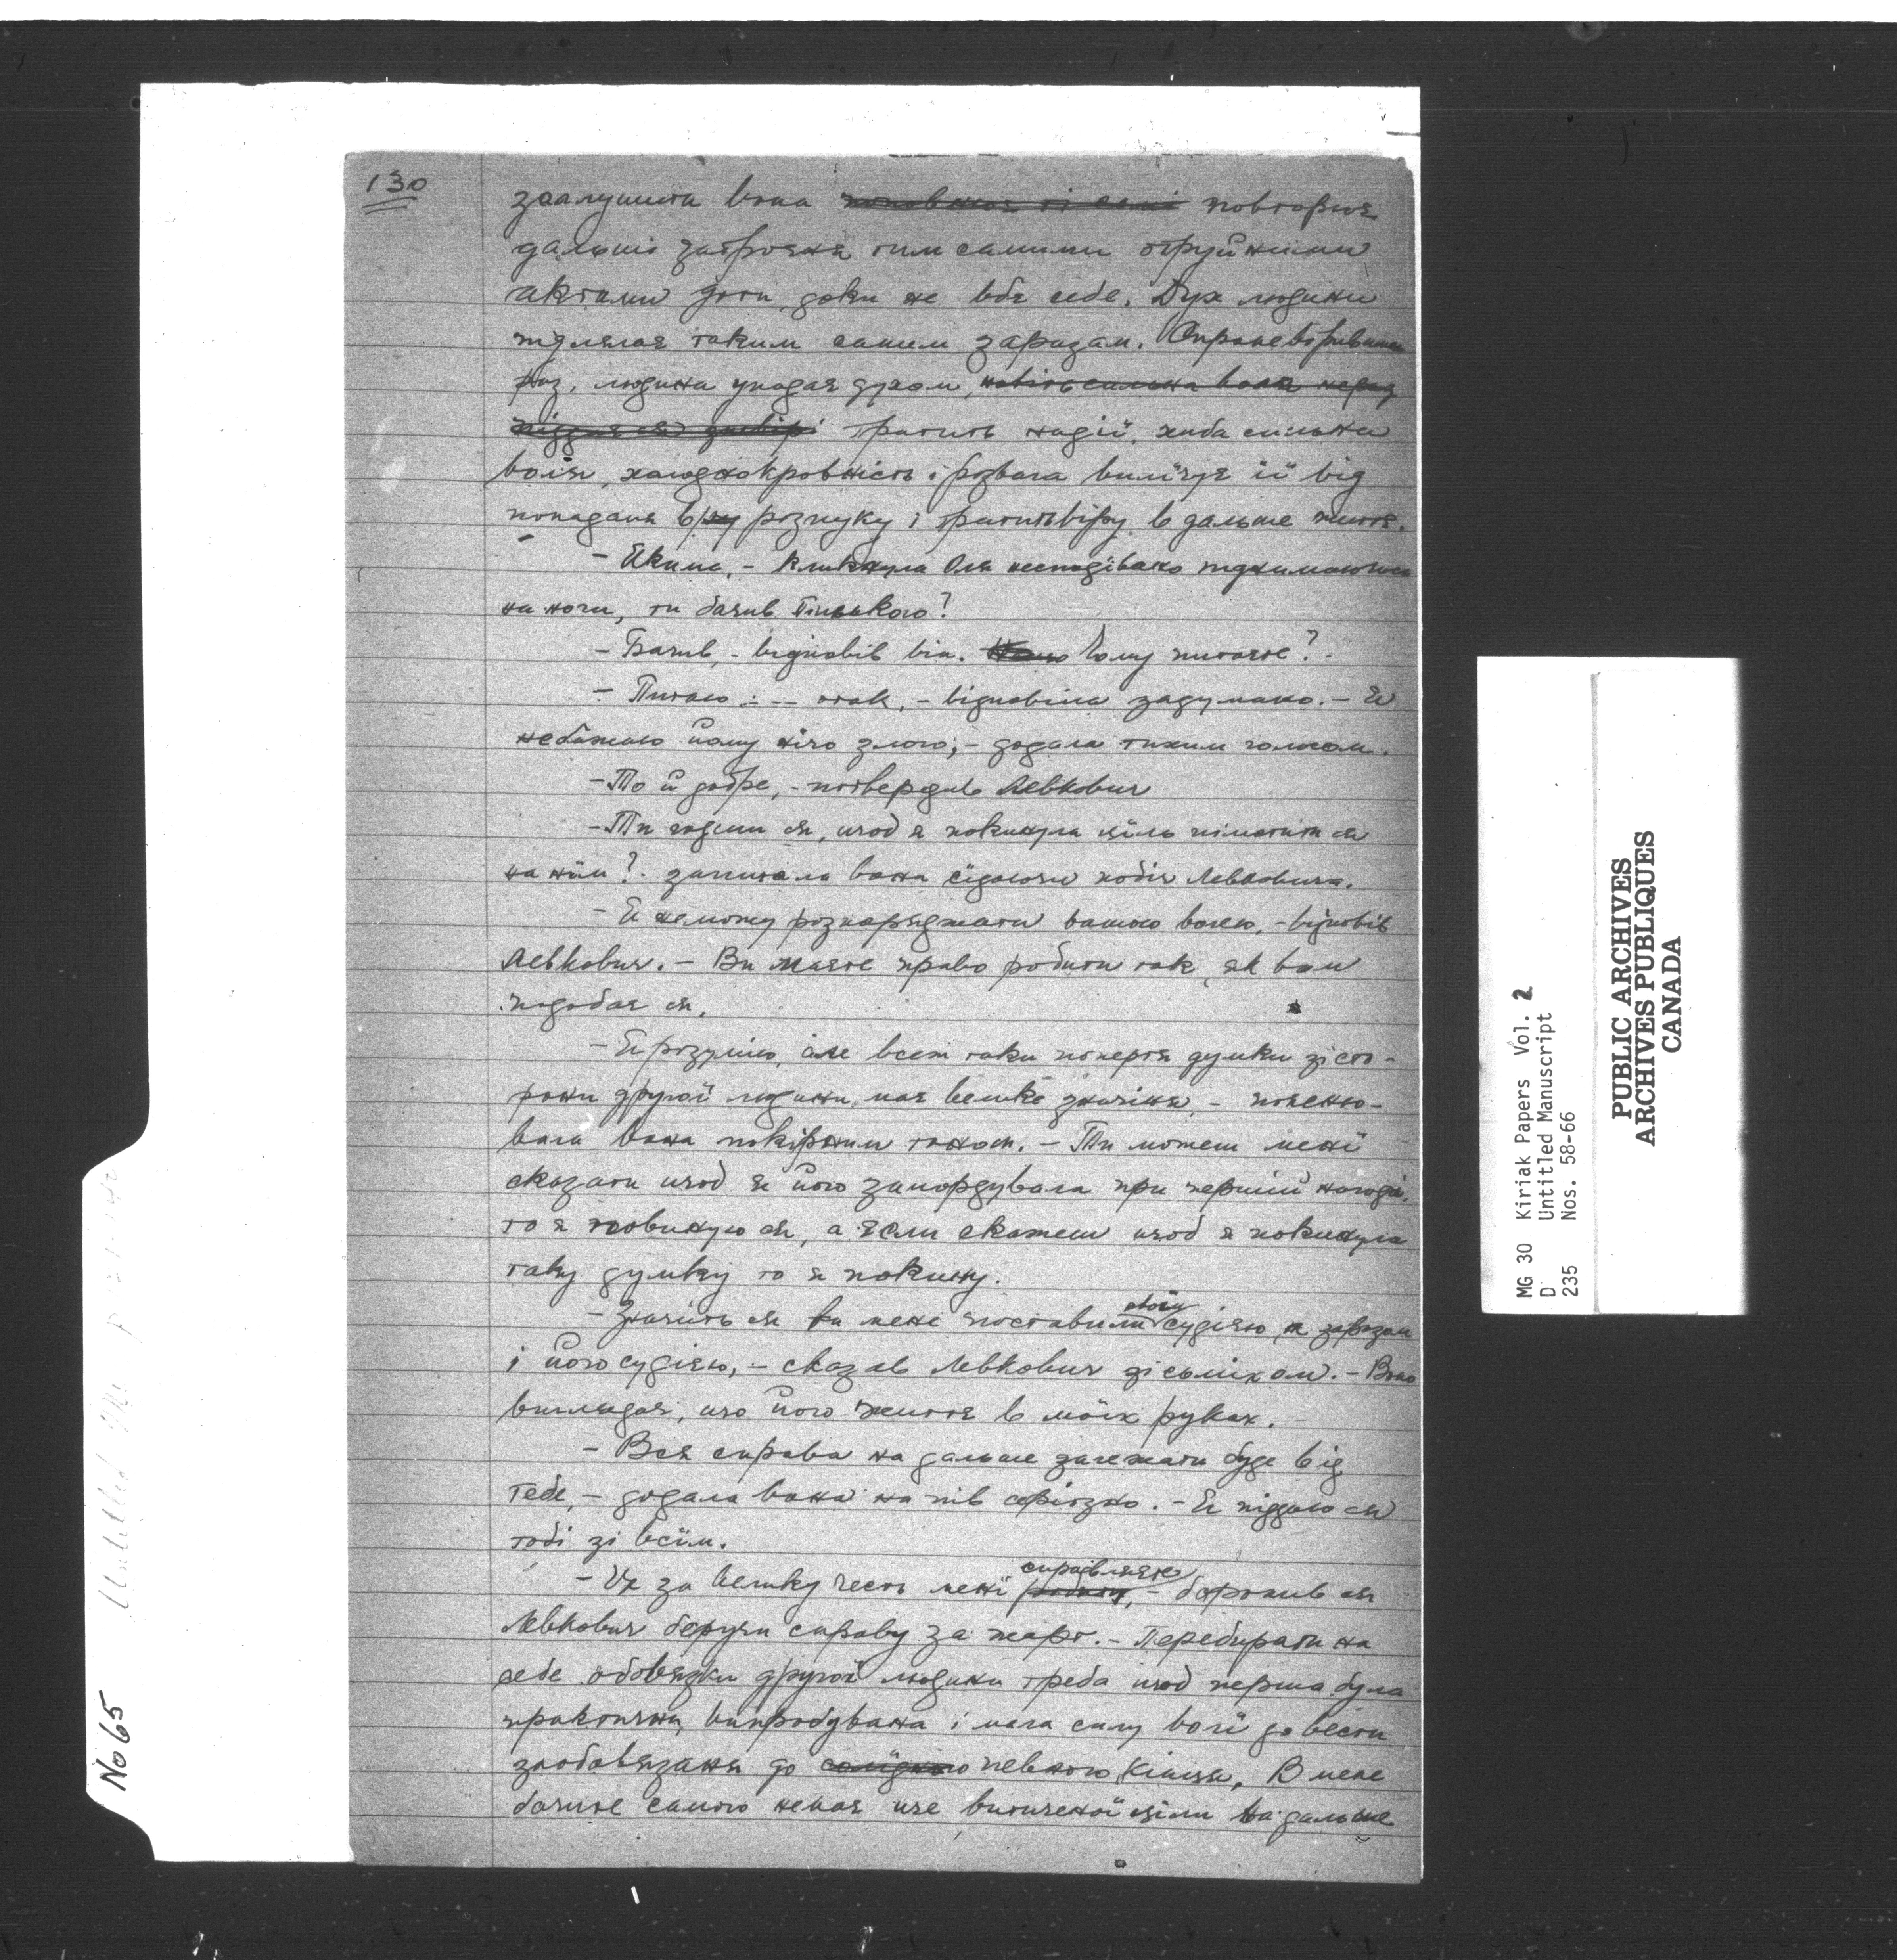 130
заглушити вона повторює
дальші затроєня тим самими отруйними
актами доти доки не вбє себе. Дух людини
підлягає таким самим заразам. Спроневірившись
раз, людина упадає духом,
тратить надії, хиба сильна
воля, холоднокровність і розвага вилічує її від
попаданя в розпуку і тратить віру в дальше житє.
- Якиме, - кликнула Оля несподівано піднимаючись
на ноги, ти бачив Більського?
- Бачив, - відповів він. Чому питаєте? -
- Питаю : -- отак, - відповіла задумано. - Я
небажаю йому нічо злого, - додала тихим голосом.
- То й добре, - потвердив Левкович
- Ти годиш ся, щоб я покинула ціль пімстити ся
на нїм? - запитала вона сїдаючи побіч Левковича.
- Я неможу розпоряджати вашою волею, - відповів
Левкович. - Ви маєте право робити так, як вам
подобає ся.
- Я розумію, але всеж таки попертя думки зі сто-
рони другої людини, має велике значіня, - поясню-
вала вона покірним тоном. - Ти можеш менї
сказати щоб я його замордувала при першій нагоді,
то я повиную ся, а єсли скажеш щоб я покинула
таку думку то я покину.
- Значить ся ви мене поставили своїм судією, а заразом
і його судією, - сказав Левкович зі сьміхом. - Воно
виглядає, що його житє в моїх руках. -
- Вся справа на дальше залежати буде від
тебе, - додала вона на пів серіозно. - Я піддаю ся
тобі зі всїм.
- Уж за велику честь менї справляєте, - боронив ся
Левкович беручи справу за жарт. - Перебирати на
себе обовязки другої людини треба щоб перша була
практична, випробувана і мала силу волї довести
зпобовязаня до певного кінця. В мене
бачите самого немає ще витиченої ціли на дальше
No 65
MG 30 Kiriak Papers Vol. 2
D Untitled Manuscript
235 Nos. 58-66
PUBLIC ARCHIVES
ARCHIVES PUBLIQUES
CANADA